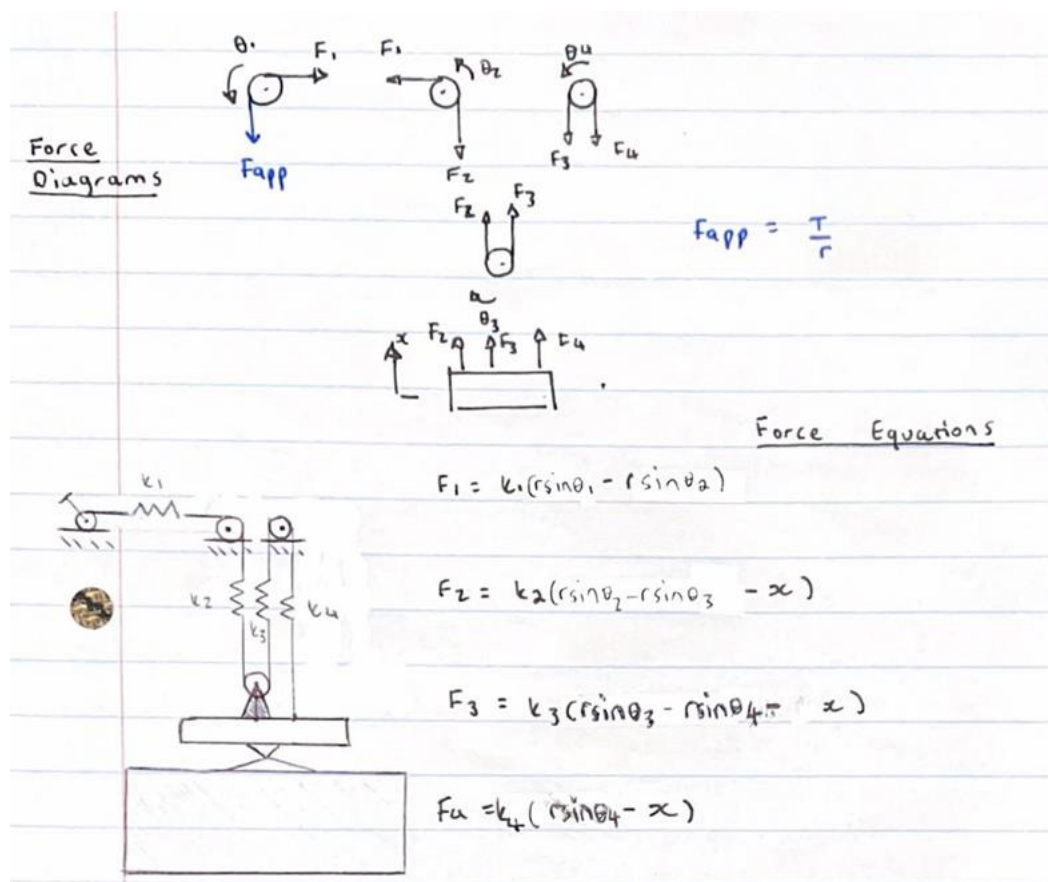 θ₁ F₁ F₁ θ₂ θ4
Force
Diagrams
Fapp F₂ F₃ F₄
F₂ F₃
Fapp = T/r
θ₃
x F₂ F₃ F₄
Force Equations
k₁
F₁ = k₁(rsinθ₁ - rsinθ₂)
k₂ k₃ k₄
F₂ = k₂(rsinθ₂-rsinθ₃ - x)
F₃ = k₃(rsinθ₃ - rsinθ₄ - x)
F₄ = k₄(rsinθ₄ - x)